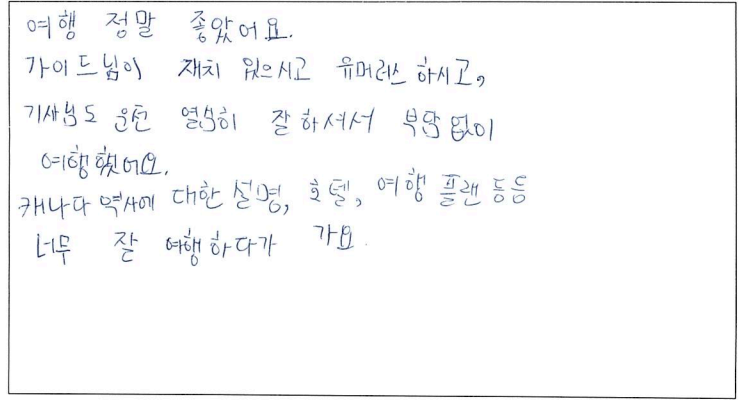 여행 정말 좋았어요.
가이드님이 재치 있으시고 유머러스 하시고,
기사님도 운전 열심히 잘 하셔서 부담 없이
여행했어요.
캐나다 역사에 대한 설명, 호텔, 여행 플랜 등등
너무 잘 여행하다가 가요.